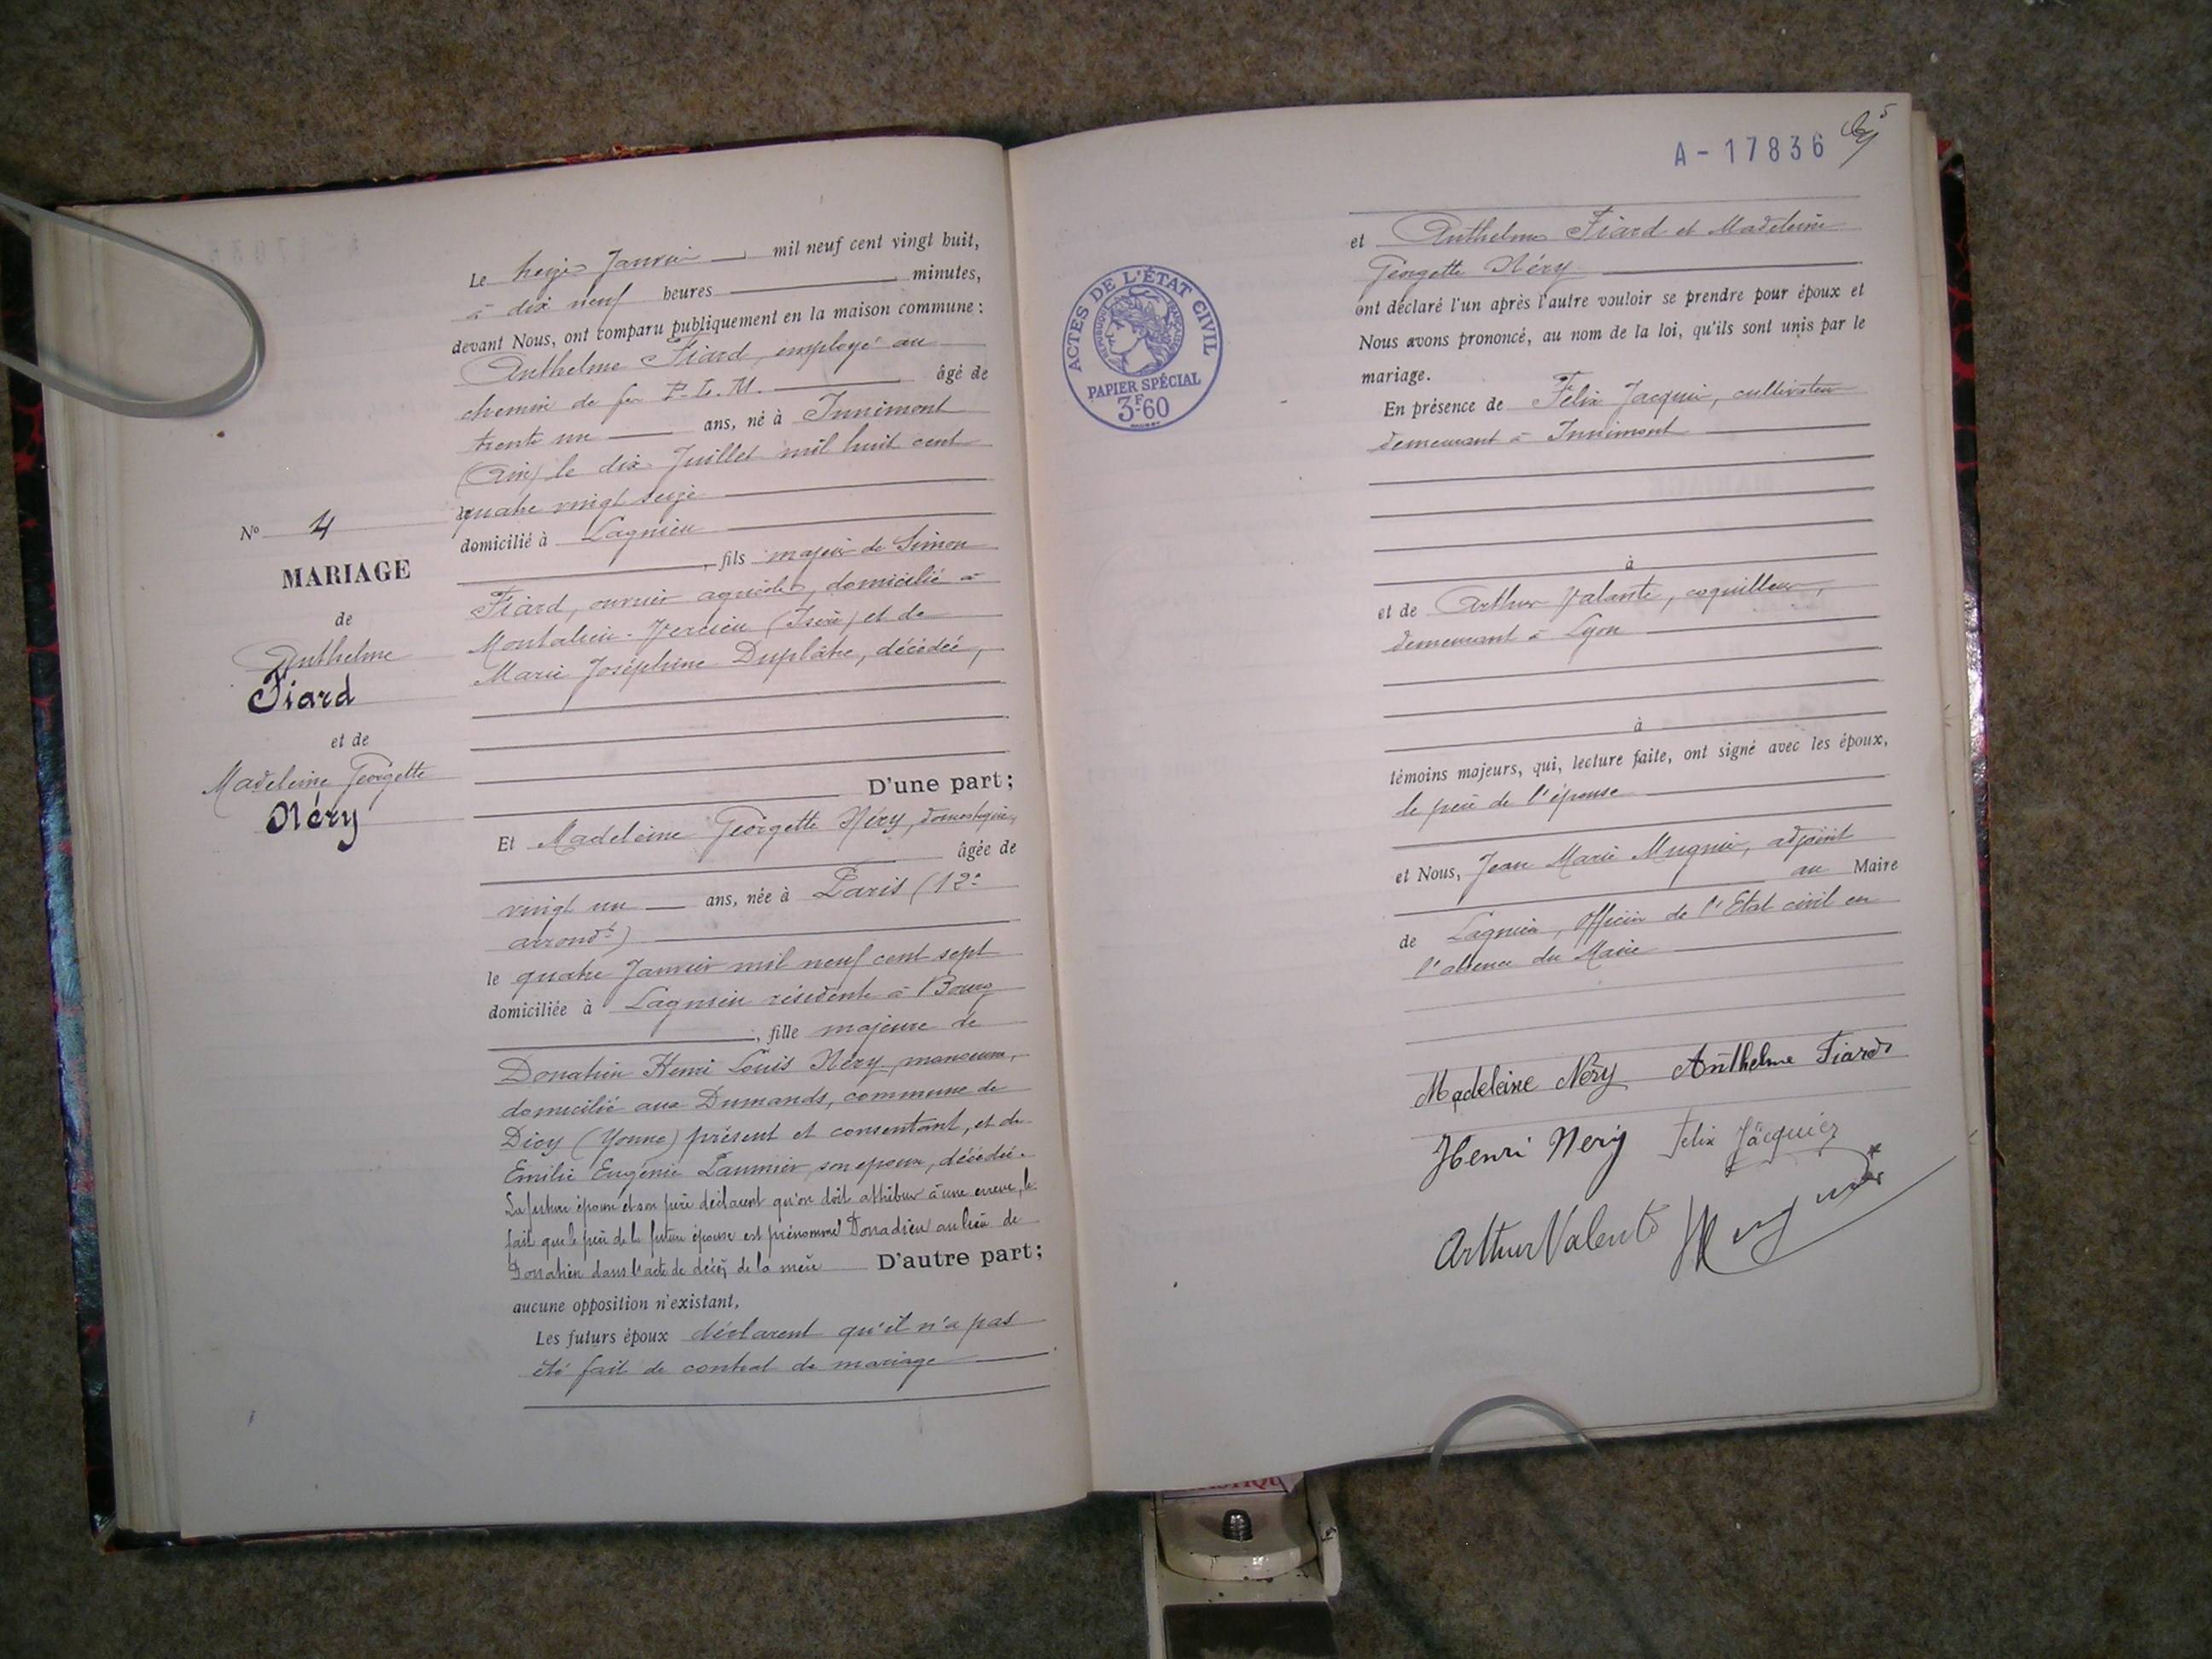 Le treize Janvier mil neuf cent vingt huit,
à dix neuf heures minutes,
devant Nous, ont comparu publiquement en la maison commune :
Anthelme Fiard, employé au
chemin de fer P.L.M. âgé de
trente un ans, né à Innimont
(Ain) le dix Juillet mil huit cent
quatre vingt seize
domicilié à Lagnieu
, fils majeur de Simon
Fiard, ouvrier agricole, domicilié à
Montalieu-Vercieu (Isère) et de
Marie Joséphine Duplâtre, décédée,
D'une part;
N° 4
MARIAGE
de
Anthelme
Fiard
et de
Madeleine Georgette
Néry
Et Madeleine Georgette Néry, domestique,
âgée de
vingt un ans, née à Paris (12e
arrondt)
le quatre Janvier mil neuf cent sept
domiciliée à Lagnieu résidente à Bourg
, fille majeure de
Donatien Henri Louis Néry,
domicilié aux Dumands, commune de
Dicy (Yonne) présent et consentant, et de
Emilie Eugénie Paumier, son épouse, décédée.
La future épouse et son père déclarent qu'on doit attribuer à une erreur, le
fait que le père de la future épouse est prénommé Donadieu au lieu de
Donatien dans l'acte de décès de la mère D'autre part;
aucune opposition n'existant,
Les futurs époux déclarent qu'il n'a pas
été fait de contrat de mariage
A-17836
ACTES DE L'ÉTAT CIVIL
RÉPUBLIQUE FRANÇAISE
PAPIER SPÉCIAL
3F60
et Anthelme Fiard et Madeleine
Georgette Néry
ont déclaré l'un après l'autre vouloir se prendre pour époux et
Nous avons prononcé, au nom de la loi, qu'ils sont unis par le
mariage.
En présence de Félix Jacquier, cultivateur
demeurant à Innimont
à
et de Arthur Valante, coquilleur,
demeurant à Lyon
à
témoins majeurs, qui, lecture faite, ont signé avec les époux,
le père de l'épouse
et Nous, Jean Marie Mugnier, adjoint
au Maire
de Lagnieu, Officier de l'Etat civil en
l'absence du Maire
Madeleine Néry Anthelme Fiard
Henri Nery Felix Jacquier
Arthur Valente